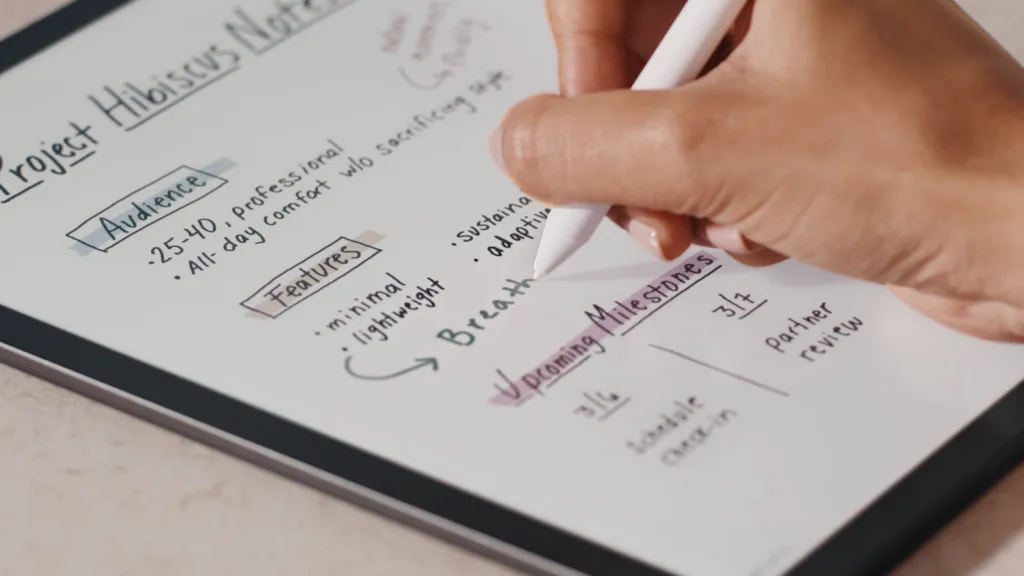 Project Hibiscus Notes
Audience
· 25-40, professional
· All-day comfort w/o sacrificing style
Features
· minimal
· lightweight
Breath
· Sustaina
· adaptiv
Upcoming Milestones
3/6
Schedule
check-in
3/7
partner
review